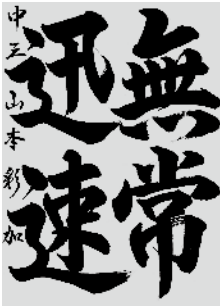 無常
迅速
中三 山本彩加